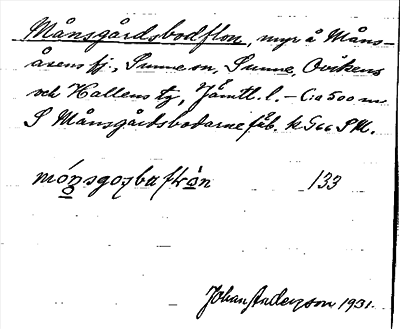 Månsgårdsbodflon, myr å Måns-
åsens fj., Sunne sn, Sunne, Ovikens
och Hallens tg, Jämtl. l. – C:a 500 m
S Månsgårdsbodarne fäb. k G 66 SV.
133
Johan Anderzson 1931.